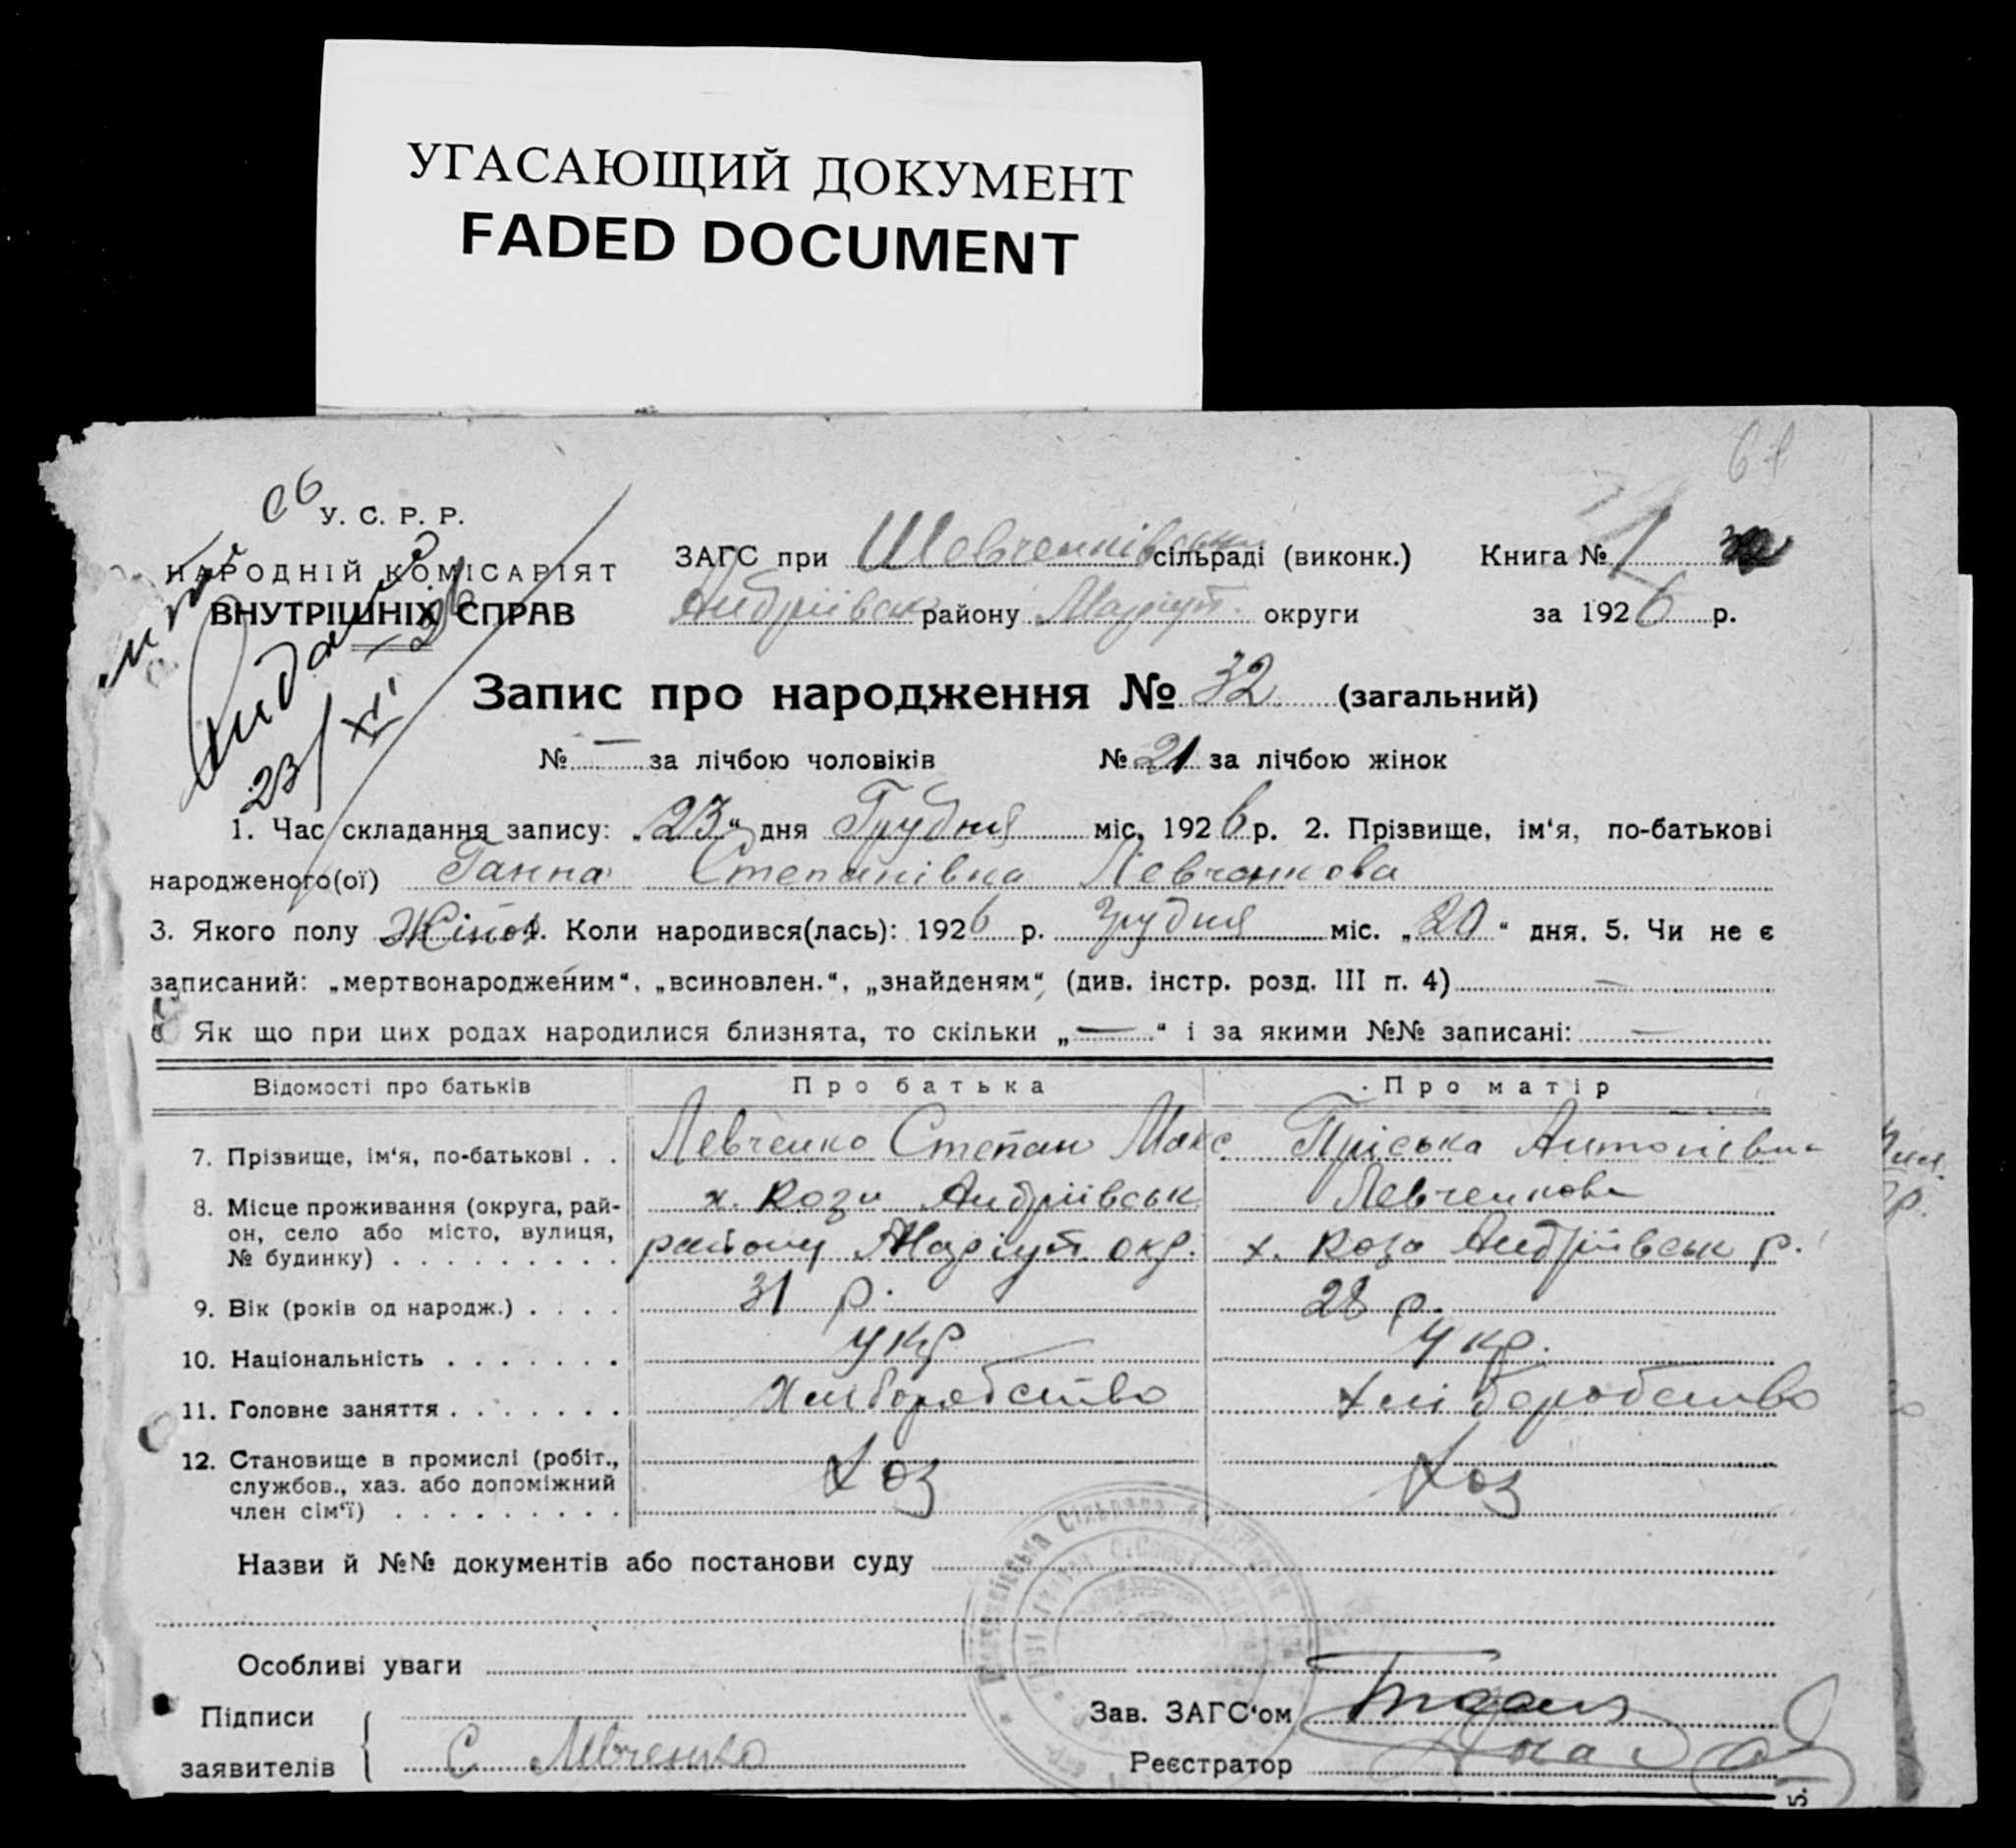 УГАСАЮЩИЙ ДОКУМЕНТ
FADED DOCUMENT
61
У. С. Р. Р.
НАРОДНІЙ КОМІСАРІЯТ
ВНУТРІШНІХ СПРАВ
23/XI
ЗАГС при Шевченківськи сільраді (виконк.) Книга № 1
Андріївськ району Маріуп. округи за 1926 р.
Запис про народження № 32 (загальний)
№ — за лічбою чоловіків № 21 за лічбою жінок
1. Час складання запису: „23“ дня Грудня міс. 1926 р. 2. Прізвище, ім‘я, по-батькові
народженого(ої) Ганна Степанівна Левченкова
3. Якого полу Жіноч. 4. Коли народився(лась): 1926 р. Грудня міс. „20“ дня. 5. Чи не є
записаний: „мертвонародженим“, „всиновлен.“, „знайденям“ (див. інстр. розд. III п. 4) —
6 Як що при цих родах народилися близнята, то скільки „—“ і за якими №№ записані: —
Відомості про батьків Про батька Про матір
7. Прізвище, ім‘я, по-батькові . . Левченко Степан Макс Пріська Антонівна
Левченкова
8. Місце проживання (округа, рай-
он, село або місто, вулиця,
№ будинку) . . . . . . . . . х. Роза Андріївськ
району Маріуп. окр. х. Роза Андріївськ р.
9. Вік (років од народж.) . . . . 31 р. 28 р.
10. Національність . . . . . . . укр укр.
11. Головне заняття . . . . . . . Хліборобство хліборобство
12. Становище в промислі (робіт.,
службов., хаз. або допоміжний
член сім‘ї) . . . . . . . . . Хоз Хоз
Назви й №№ документів або постанови суду
Особливі уваги
Підписи
заявителів С Левченко
Зав. ЗАГС‘ом
Реєстратор
5.